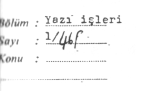 Bölüm : Yazı işleri
Sayı : 1/468
Konu :